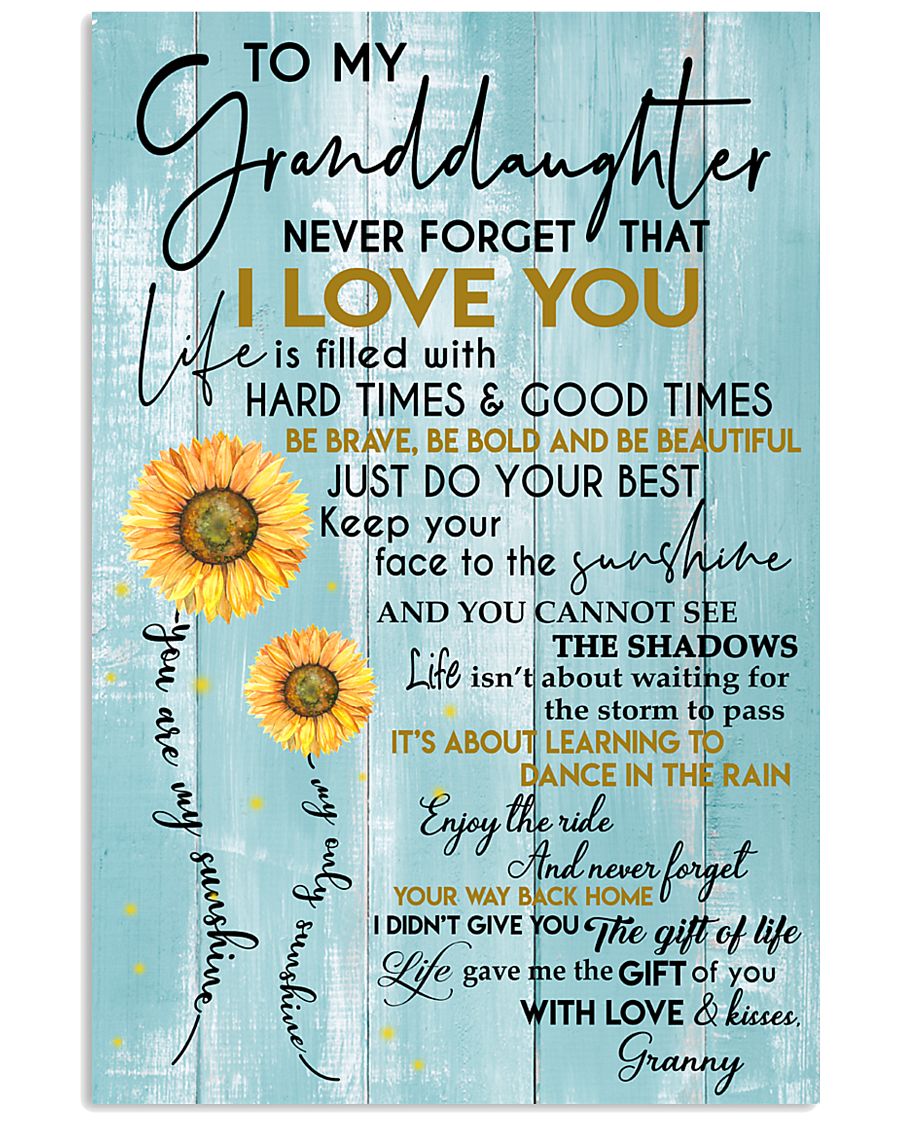 TO MY
Granddaughter
NEVER FORGET THAT
I LOVE YOU
Life is filled with
HARD TIMES & GOOD TIMES
BE BRAVE, BE BOLD AND BE BEAUTIFUL
JUST DO YOUR BEST
Keep your
face to the sunshine
AND YOU CANNOT SEE
THE SHADOWS
Life isn't about waiting for
the storm to pass
IT'S ABOUT LEARNING TO
DANCE IN THE RAIN
Enjoy the ride
And never forget
YOUR WAY BACK HOME
I DIDN'T GIVE YOU The gift of life
Life gave me the GIFT of you
WITH LOVE & kisses,
Granny
you are my sunshine
my only sunshine